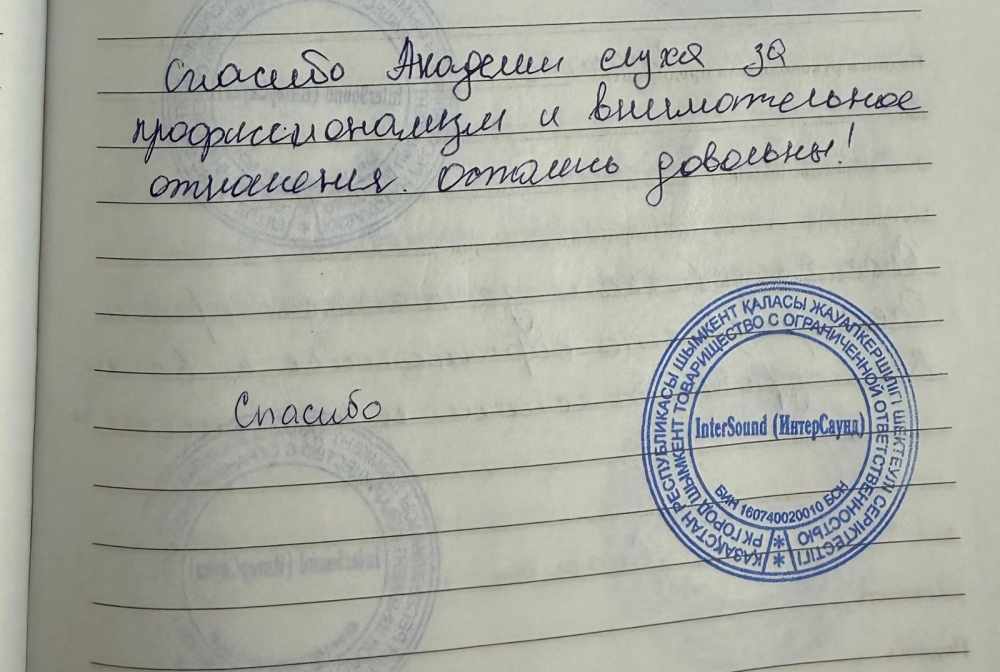 Спасибо Академии слуха за
профессионализм и внимательное
отношения. Остались довольны!
Спасибо
ҚАЗАҚСТАН РЕСПУБЛИКАСЫ ШЫМКЕНТ ҚАЛАСЫ ЖАУАПКЕРШІЛІГІ ШЕКТЕУЛІ СЕРІКТЕСТІГІ
РК ГОРОД ШЫМКЕНТ ТОВАРИЩЕСТВО С ОГРАНИЧЕННОЙ ОТВЕТСТВЕННОСТЬЮ
InterSound (ИнтерСаунд)
БИН 160740020010 БСН